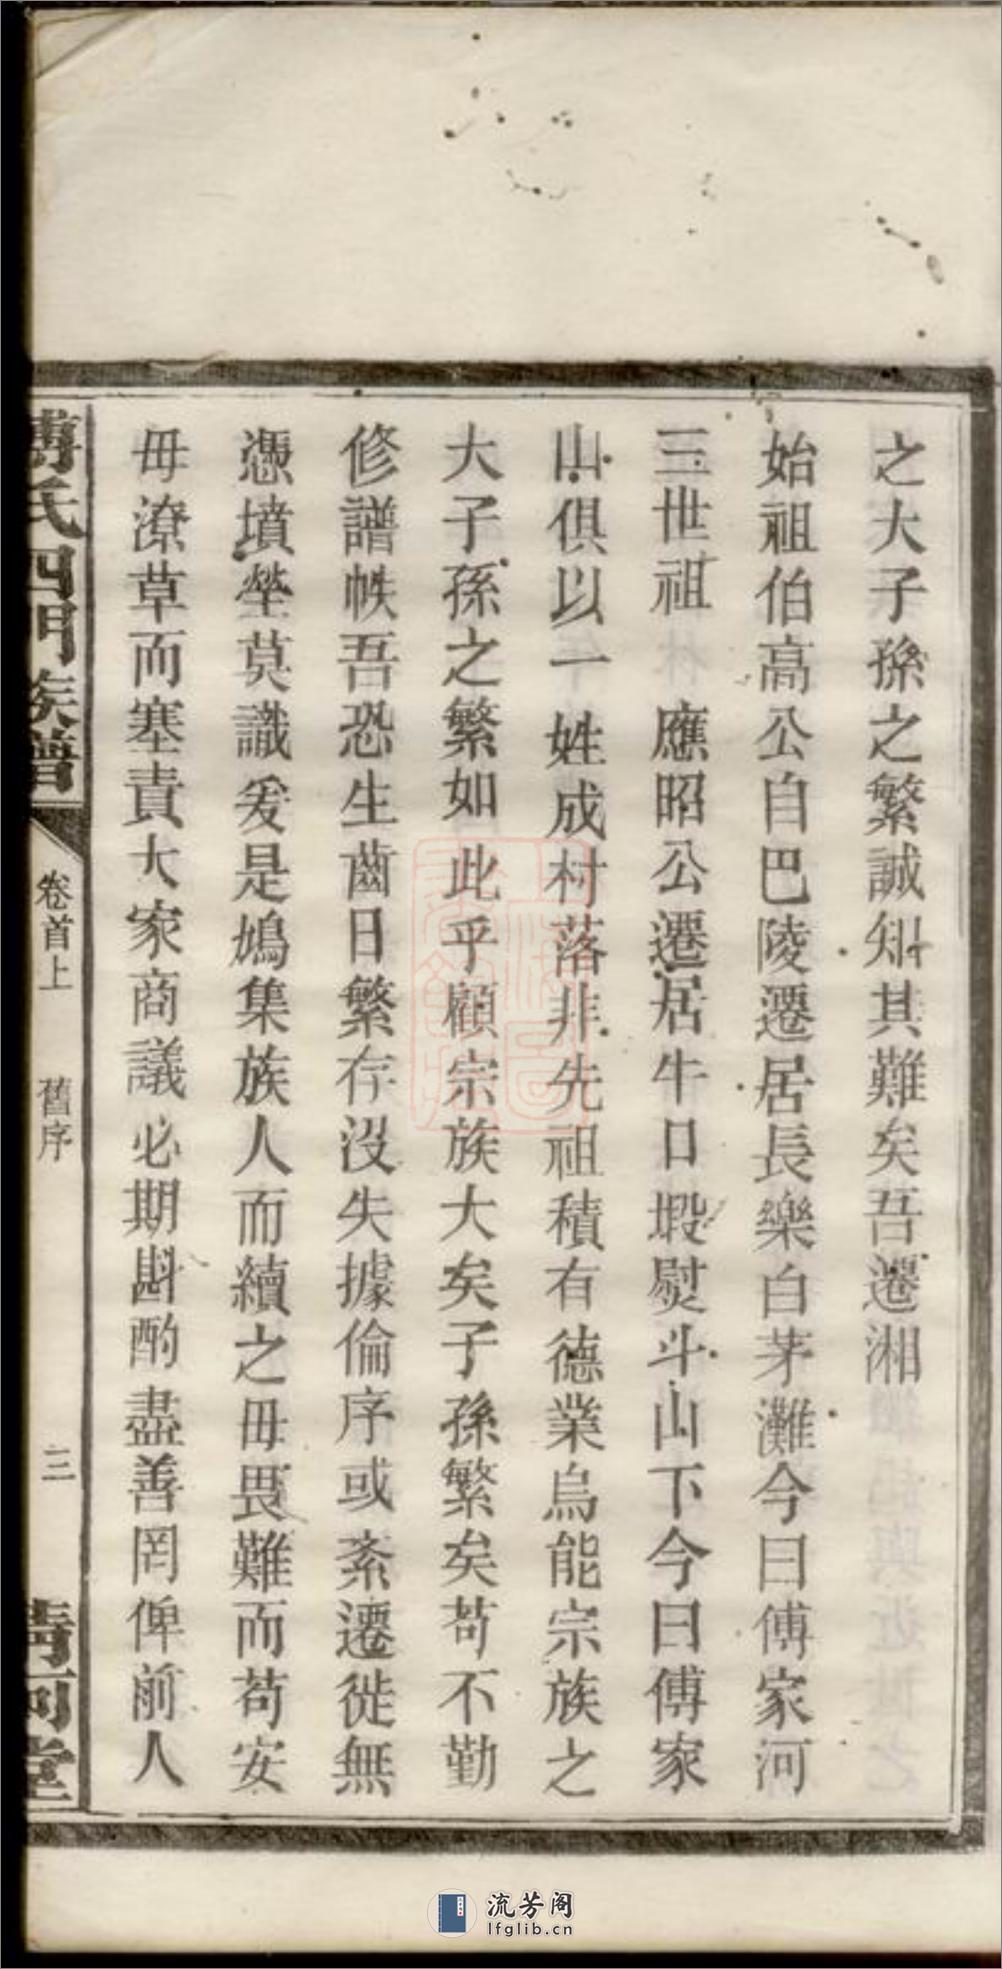 之大子孫之繁誠知其難矣吾遷湘
始祖伯高公自巴陵遷居長樂白茅灘今曰傅家河
三世祖　應昭公遷居牛口塅熨斗山下今曰傅家
山俱以一姓成村落非先祖積有德業烏能宗族之
大子孫之繁如此乎顧宗族大矣子孫繁矣苟不勤
修譜帙吾恐生齒日繁存沒失據倫序或紊遷徙無
憑墳塋莫識爰是鳩集族人而續之毋畏難而苟安
毋潦草而塞責大家商議必期斟酌盡善罔俾前人
傅氏四門族譜
卷首上　舊序
三
清河堂
流芳阁
lfglib.cn